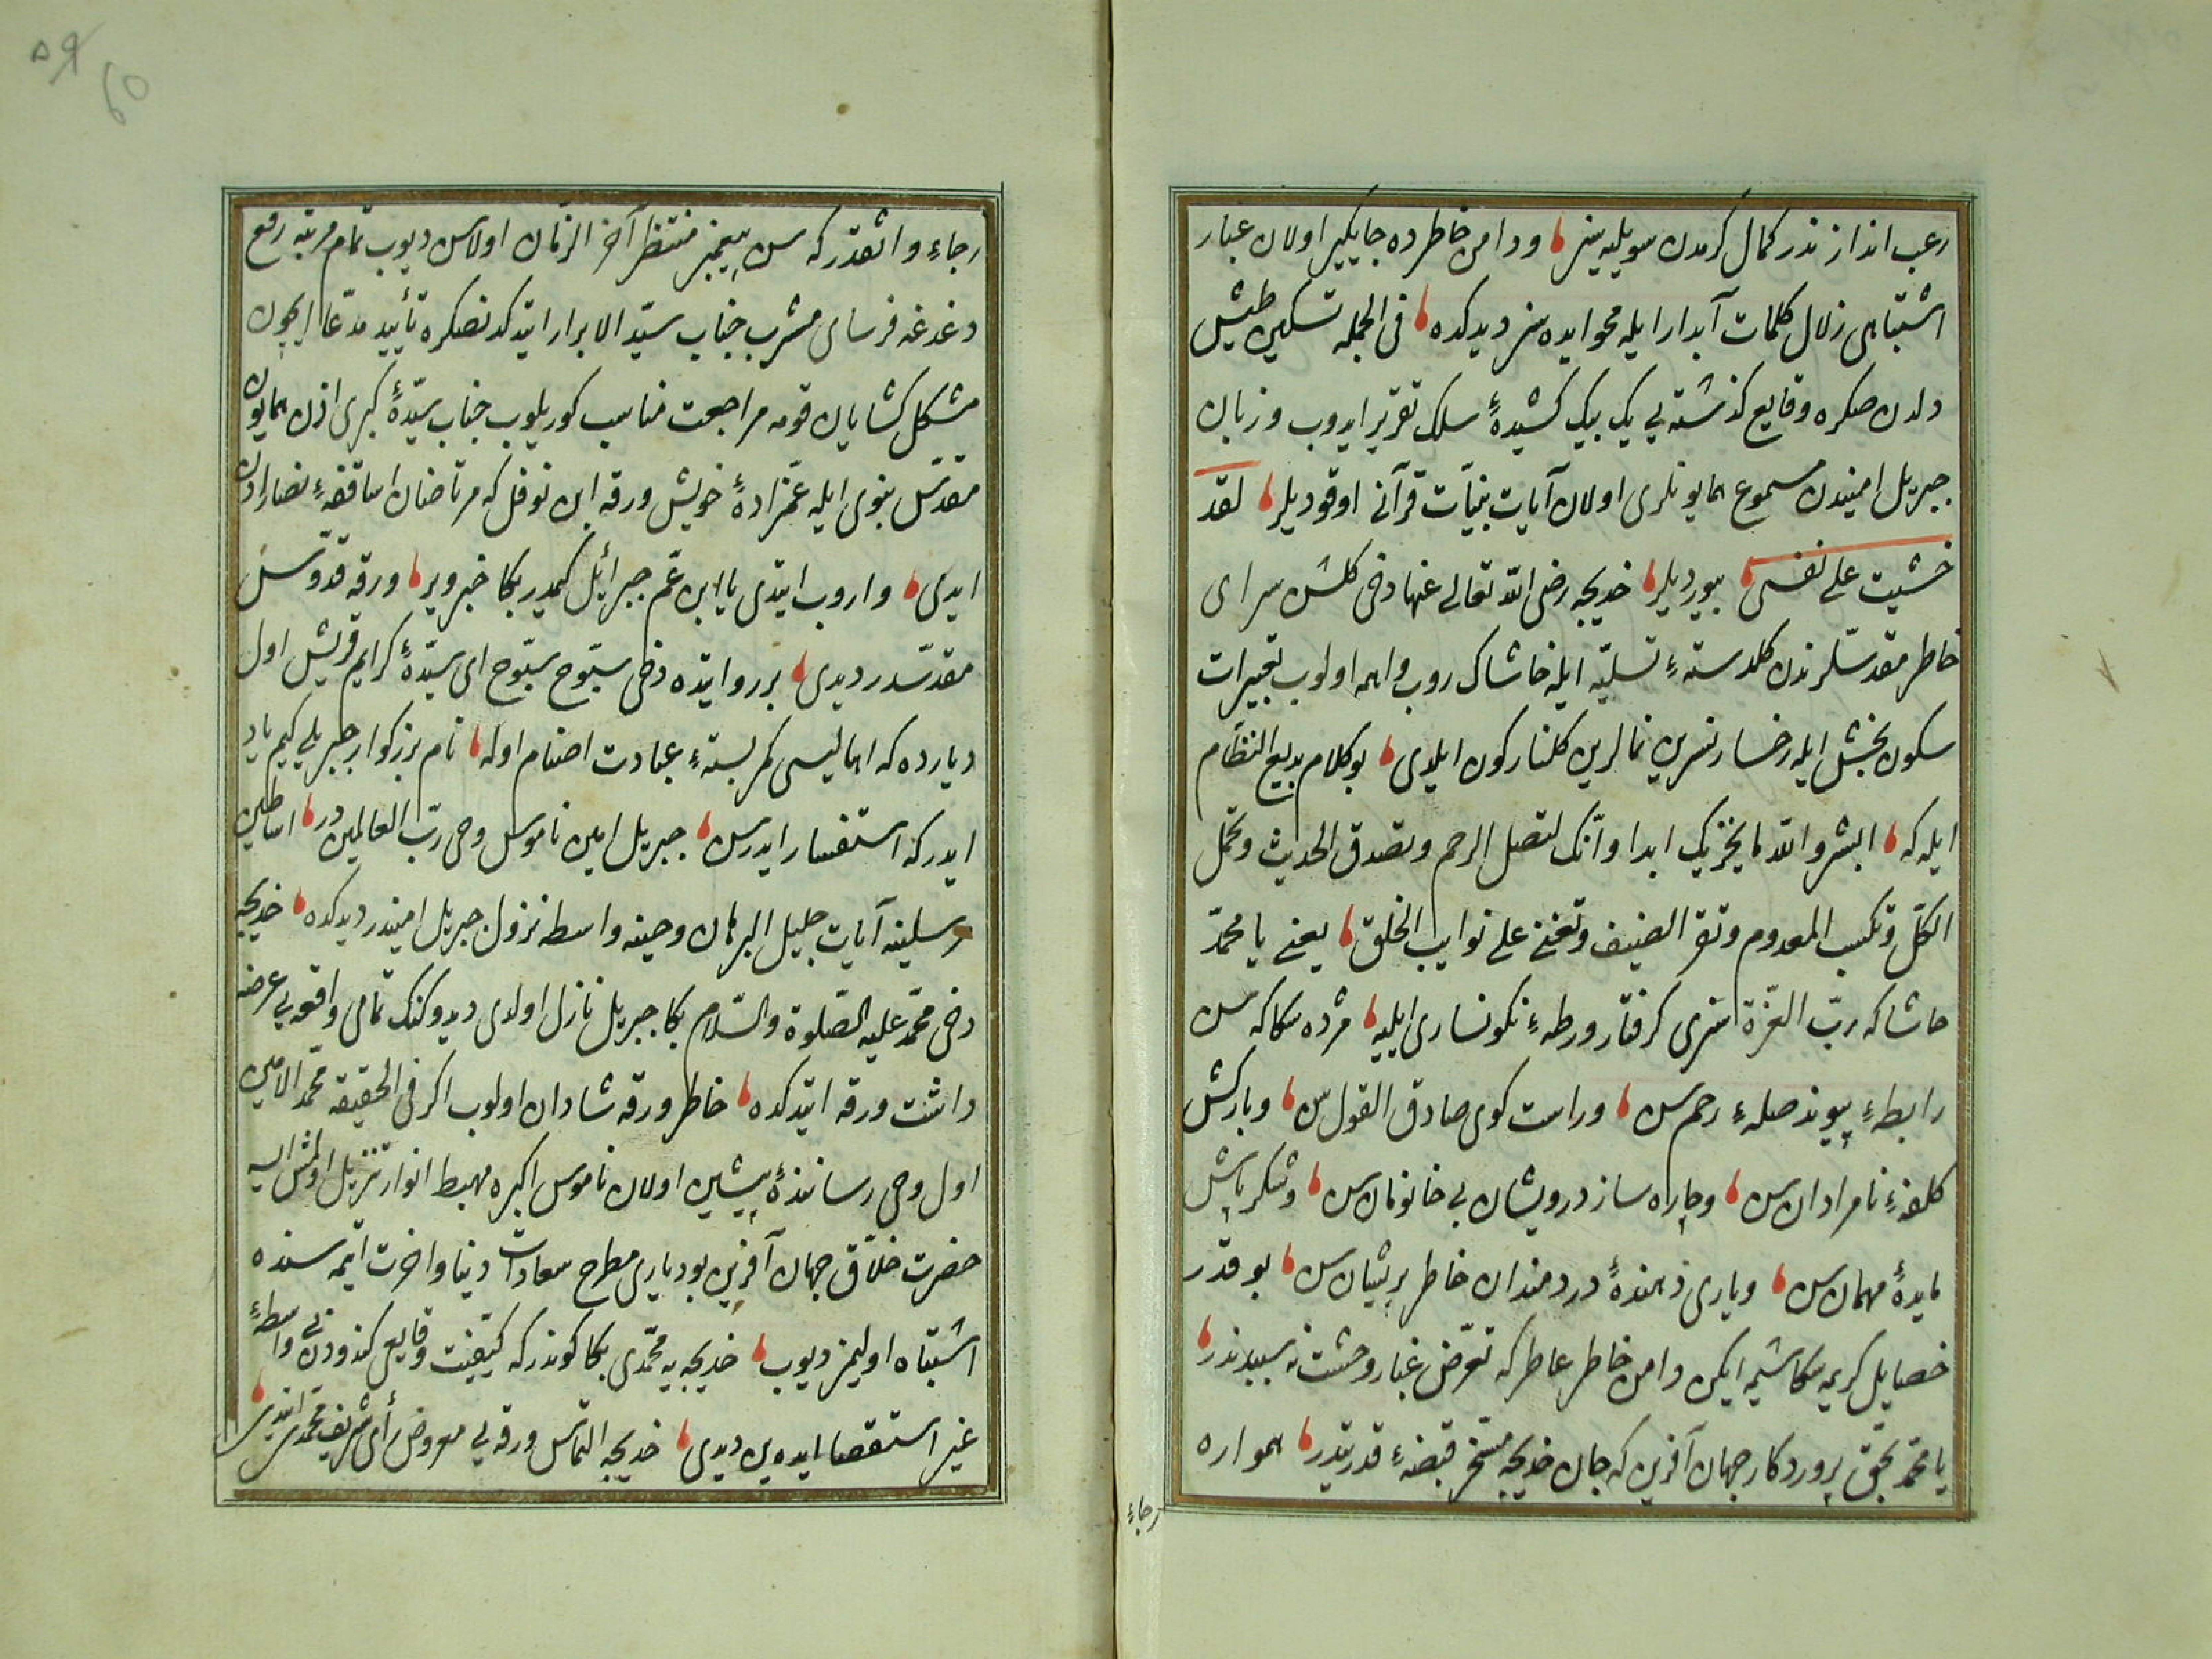 رعب انداز ندر كمال كرمدن سويليه سز ودامن خاطرده جايكير اولان غبار
اشتباهى زلال كلمات آبدار ايله محو ايده سز ديدكده فى الجمله تسكين طيش
دلدن صكره وقايع كذشته يى يك بيك كشيدهٔ سلك تقرير ايدوب وزبان
جبريل اميندن مسموع همايونلرى اولان آيات بيّنات قرآنى اوقوديلر لقد
خشيت على نفسى بيورديلر خديجه رضى الله تعالى عنها دخى كلشن سراى
خاطر مقدسلرندن كلدستهٔ تسليّه ايله خاشاك روب واهمه اولوب تعبيرات
سكون بخش ايله رخسار نسرين نمالرين كلنار كون ايلدى بو كلام بديع النظام
ايله كه البشر والله ما يخزيك ابدا وانّك لتصل الرحم وتصدق الحديث وتحمل
الكلّ وتكسب المعدوم وتقر الضيف وتعين على نوايب الخلق يعنى يا محمّد
حاشا كه ربّ العزّة سنى كرفتار ورطهٔ نكونسارى ايليه مژده سكا كه سن
رابطهٔ پيوند صلهٔ رحمسن وراست كوى صادق القولسن وباركش
كلفهٔ نامرادانسن وچاره ساز درويشان بى خانمانسن وشكر پاش
مايدهٔ مهمانسن ويارى دهندهٔ دردمندان خاطر پريشانسن بو قدر
خصايل كريمه سكا شيمه ايكن دامن خاطر عاطركه تعرّض غبار وحشت نه سببدندر
يا محمّد بحقّ پروردكار جهان آفرين كه جان خديجه مسخّر قبضهٔ قدرتيدر همواره
رجاء
رجاء واثقدر كه سن پيغمبر منتظر آخر الزمان اولاسن ديوب تمام مرتبه رفع
دغدغه فرساى مشرب جناب سيّد الابرار ايتدكدنصكره تأييد مدّعا ايچون
مشكل كشايان قومه مراجعت مناسب كوريلوب جناب سيّدهٔ كبرى اذن همايون
مقدّس نبوى ايله عمّزادهٔ خويش ورقه ابن نوفل كه مرتاضان اساقفهٔ نصارادن
ايدى واروب ايتدى يا ابن عمّ جبرائل كيمدر بكا خبر وير ورقه قدّوسن
مقدّسدر ديدى بر روايتده دخى سبّوح سبّوح اى سيّدهٔ كرايم قريش اول
ديارده كه اهاليسى كمربستهٔ عبادت اصنام اوله نام بزركوار جبريلى كيم ياد
ايدر كه استفسار ايدرسن جبريل امين ناموس وحى ربّ العالميندر اساطين
رسلينه آيات جليل البرهان وحينه واسطه نزول جبريل اميندر ديدكده خديجه
دخى محمّد عليه الصّلوة والسّلام بكا جبريل نازل اولدى ديدوكنك تمامى واقعه يى عرضه
داشت ورقه ايتدكده خاطر ورقه شادان اولوب اكر فى الحقيقه محمّد الامين
اول وحى رسانندهٔ پيشين اولان ناموس اكبره مهبط انوار تنزيل اولمش ايسه
حضرت خلّاق جهان آفرين بو ديارى مطرح سعادات دنيا واخرت ايتمه سنده
اشتباه اولنمز ديوب خديجه يه محمّدى بكا كوندر كه كيّفيت وقايعى كندودن بى واسطهٔ
غير استقصا ايده ين ديدى خديجه التماس ورقه يى معروض رأى شريف محمّدى ايتدى